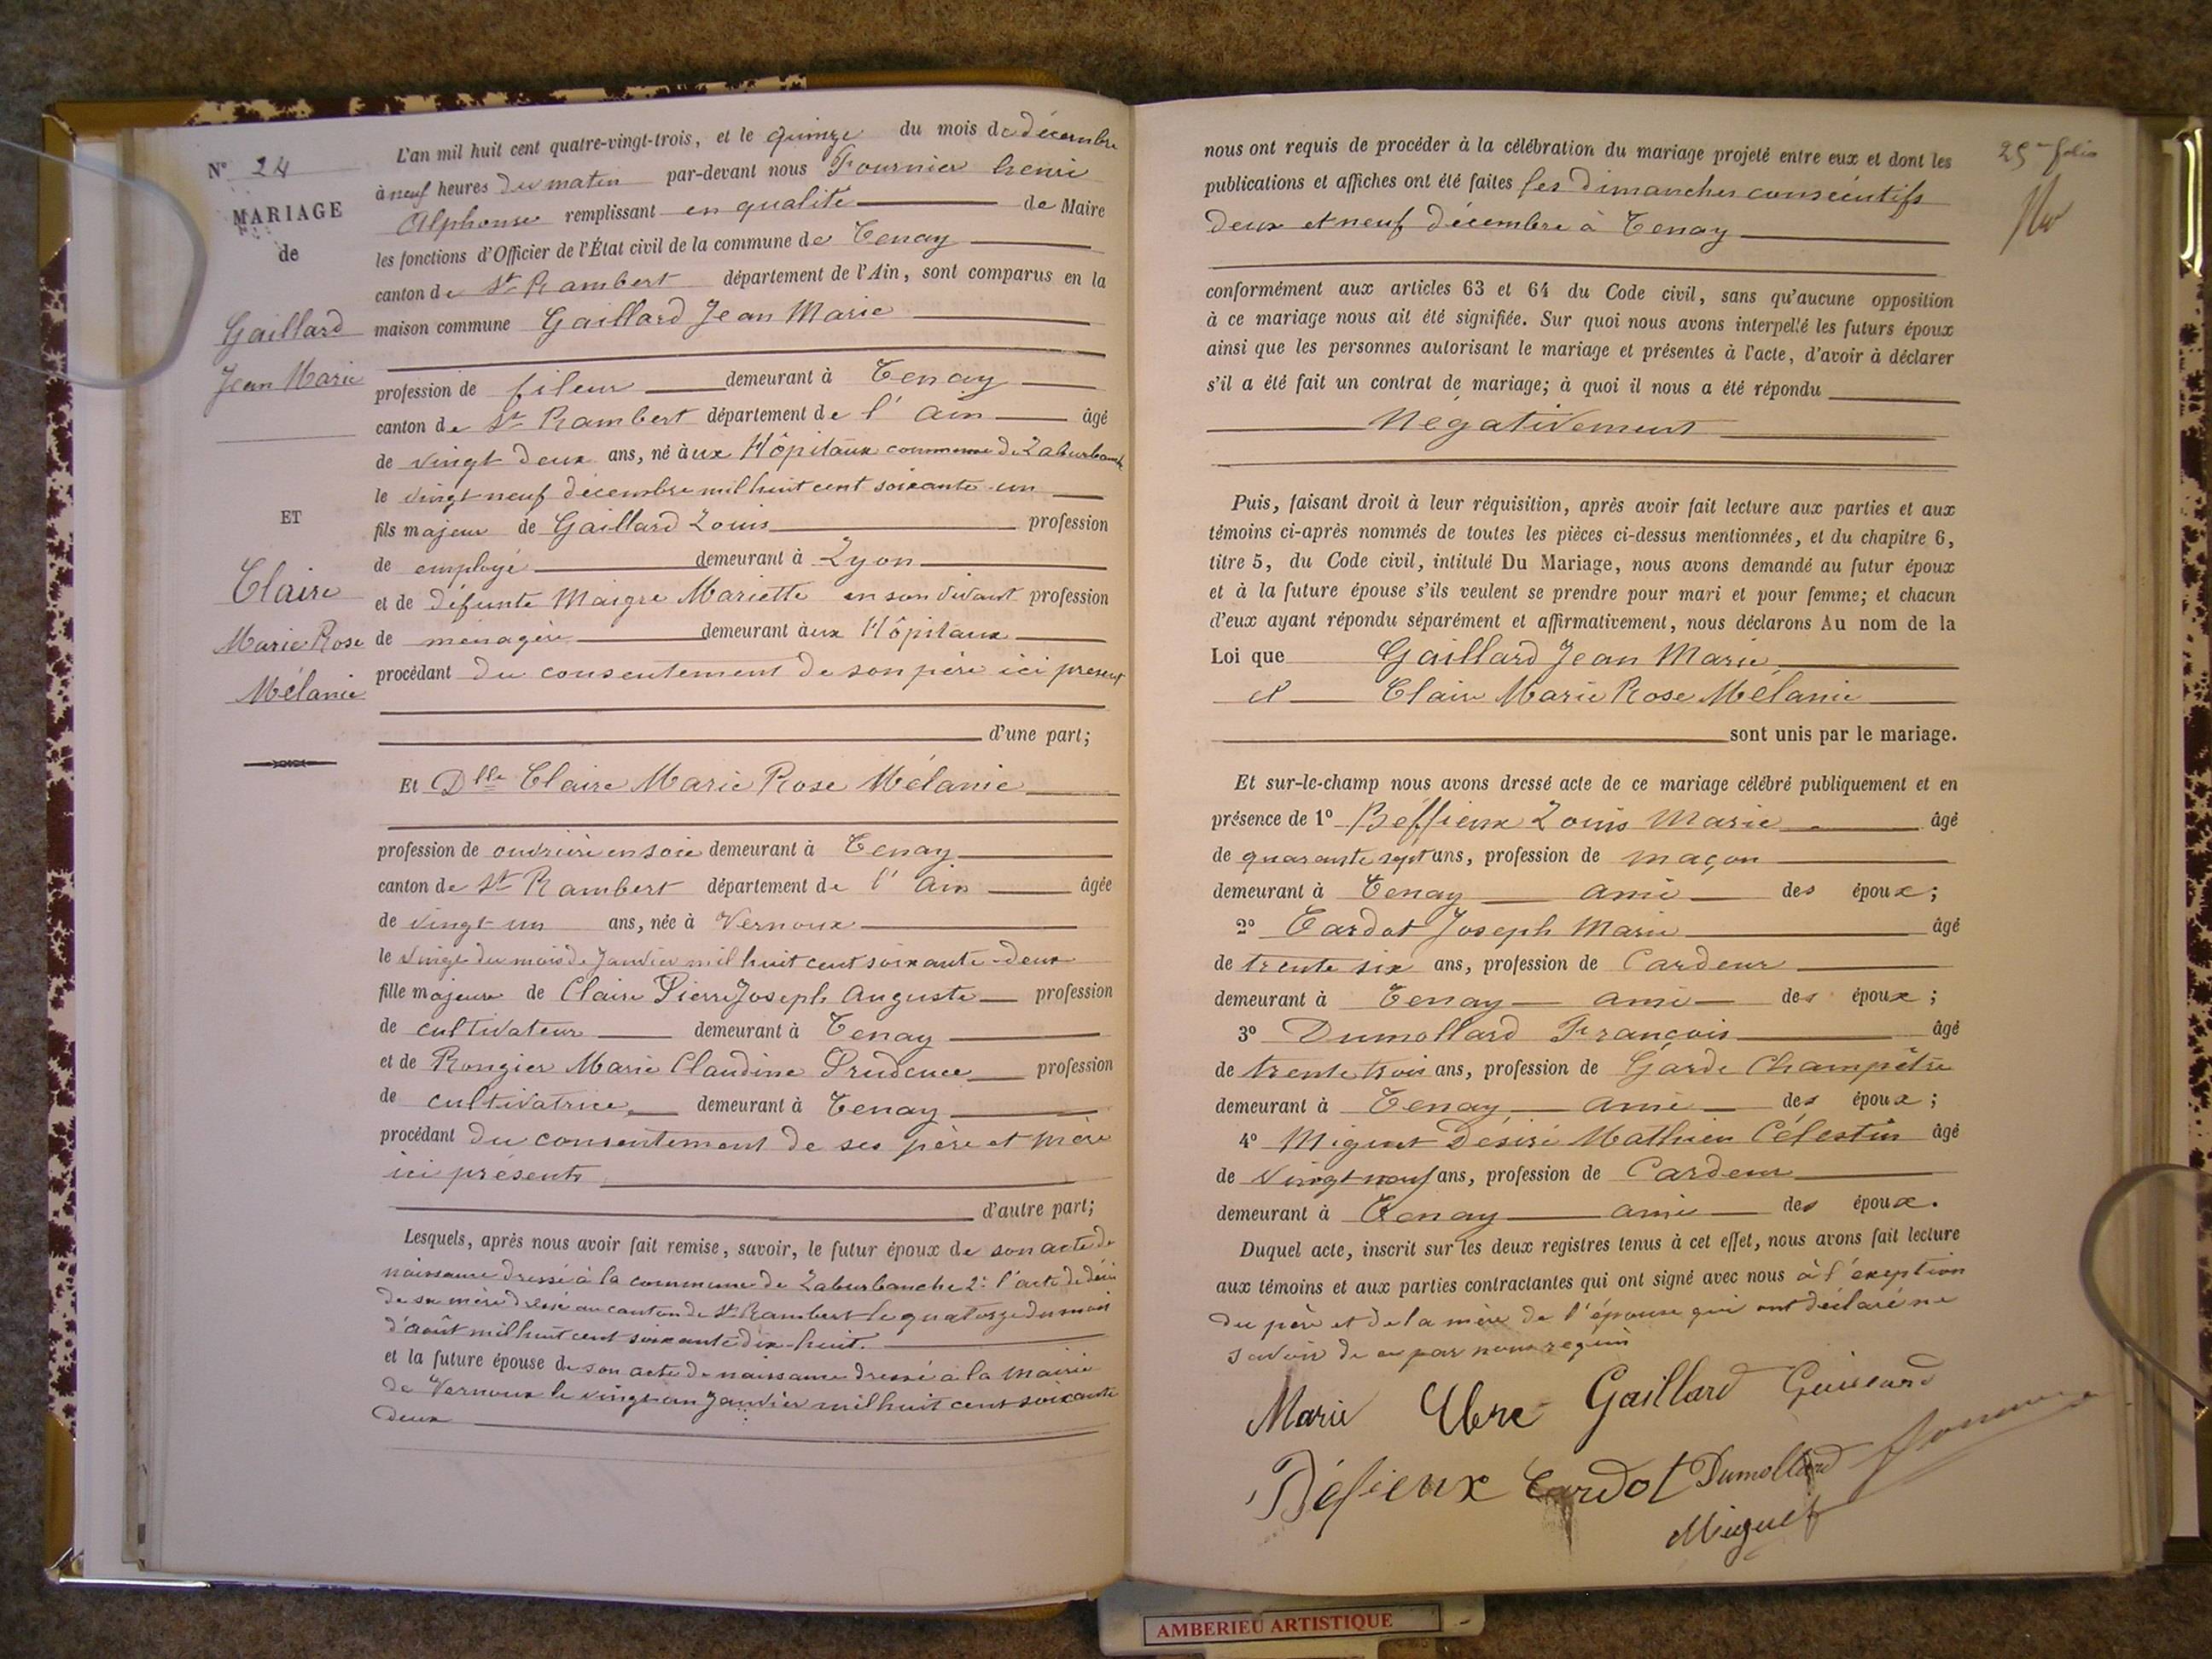 N° 24
MARIAGE
de
Gaillard
Jean Marie
ET
Claire
Marie Rose
Mélanie
L'an mil huit cent quatre-vingt-trois, et le quinze du mois de décembre
à neuf heures du matin par-devant nous Fournier henri
Alphonse remplissant en qualité de Maire
les fonctions d'Officier de l'État civil de la commune de Tenay
canton de St Rambert département de l'Ain, sont comparus en la
maison commune Gaillard Jean Marie
profession de fileur demeurant à Tenay
canton de St Rambert département de l'Ain âgé
de vingt deux ans, né aux Hôpitaux commune de Laburbanche
le vingt neuf décembre mil huit cent soixante un
fils majeur de Gaillard Louis profession
de employé demeurant à Lyon
et de défunte Maigre Mariette en son vivant profession
de ménagère demeurant aux Hôpitaux
procédant du consentement de son père ici présent
d'une part;
Et Dlle Claire Marie Rose Mélanie
profession de ouvrière en soie demeurant à Tenay
canton de St Rambert département de l'Ain âgée
de vingt un ans, née à Vernoux
le vingt du mois de Janvier mil huit cent soixante-deux
fille majeure de Claire Pierre Joseph Auguste profession
de cultivateur demeurant à Tenay
et de Rongier Marie Claudine Prudence profession
de cultivatrice demeurant à Tenay
procédant du consentement de ses père et mère
ici présents
d'autre part;
Lesquels, après nous avoir fait remise, savoir, le futur époux de son acte de
naissance dressé à la commune de Laburbanche 2° l'acte de décès
de sa mère dressé au canton de St Rambert le quatorze du mois
d'août mil huit cent soixante dix-huit.
et la future épouse de son acte de naissance dressé à la mairie
de Vernoux le vingt un Janvier mil huit cent soixante
deux
25me folio
nous ont requis de procéder à la célébration du mariage projeté entre eux et dont les
publications et affiches ont été faites les dimanches consécutifs
deux et neuf décembre à Tenay
conformément aux articles 63 et 64 du Code civil, sans qu'aucune opposition
à ce mariage nous ait été signifiée. Sur quoi nous avons interpellé les futurs époux
ainsi que les personnes autorisant le mariage et présentes à l'acte, d'avoir à déclarer
s'il a été fait un contrat de mariage; à quoi il nous a été répondu
Négativement
Puis, faisant droit à leur réquisition, après avoir fait lecture aux parties et aux
témoins ci-après nommés de toutes les pièces ci-dessus mentionnées, et du chapitre 6,
titre 5, du Code civil, intitulé Du Mariage, nous avons demandé au futur époux
et à la future épouse s'ils veulent se prendre pour mari et pour femme; et chacun
d'eux ayant répondu séparément et affirmativement, nous déclarons Au nom de la
Loi que Gaillard Jean Marie
et Claire Marie Rose Mélanie
sont unis par le mariage.
Et sur-le-champ nous avons dressé acte de ce mariage célébré publiquement et en
présence de 1° Béffieux Louis Marie âgé
de quarante sept ans, profession de maçon
demeurant à Tenay ami des époux;
2° Tardot Joseph Marie âgé
de trente six ans, profession de Cardeur
demeurant à Tenay ami des époux;
3° Dumollard François âgé
de trente trois ans, profession de Garde Champêtre
demeurant à Tenay ami des époux;
4° Miguet Désiré Mathieu Célestin âgé
de vingt neuf ans, profession de Cardeur
demeurant à Tenay ami des époux.
Duquel acte, inscrit sur les deux registres tenus à cet effet, nous avons fait lecture
aux témoins et aux parties contractantes qui ont signé avec nous à l'exeption
du père et de la mère de l'épouse qui ont déclaré ne
savoir de ce par nous requis
Marie Gaillard
Béfieux Tardot Dumollard
Miguet
AMBERIEU ARTISTIQUE